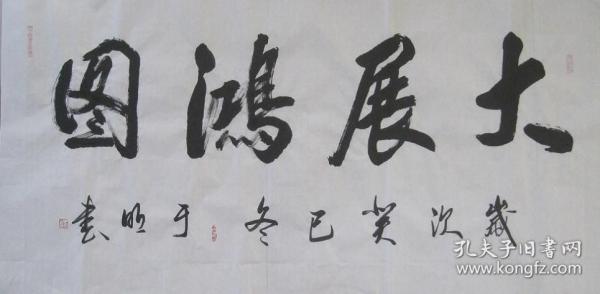 大展鸿图
岁次癸巳冬于明书
孔夫子旧书网
www.kongfz.com